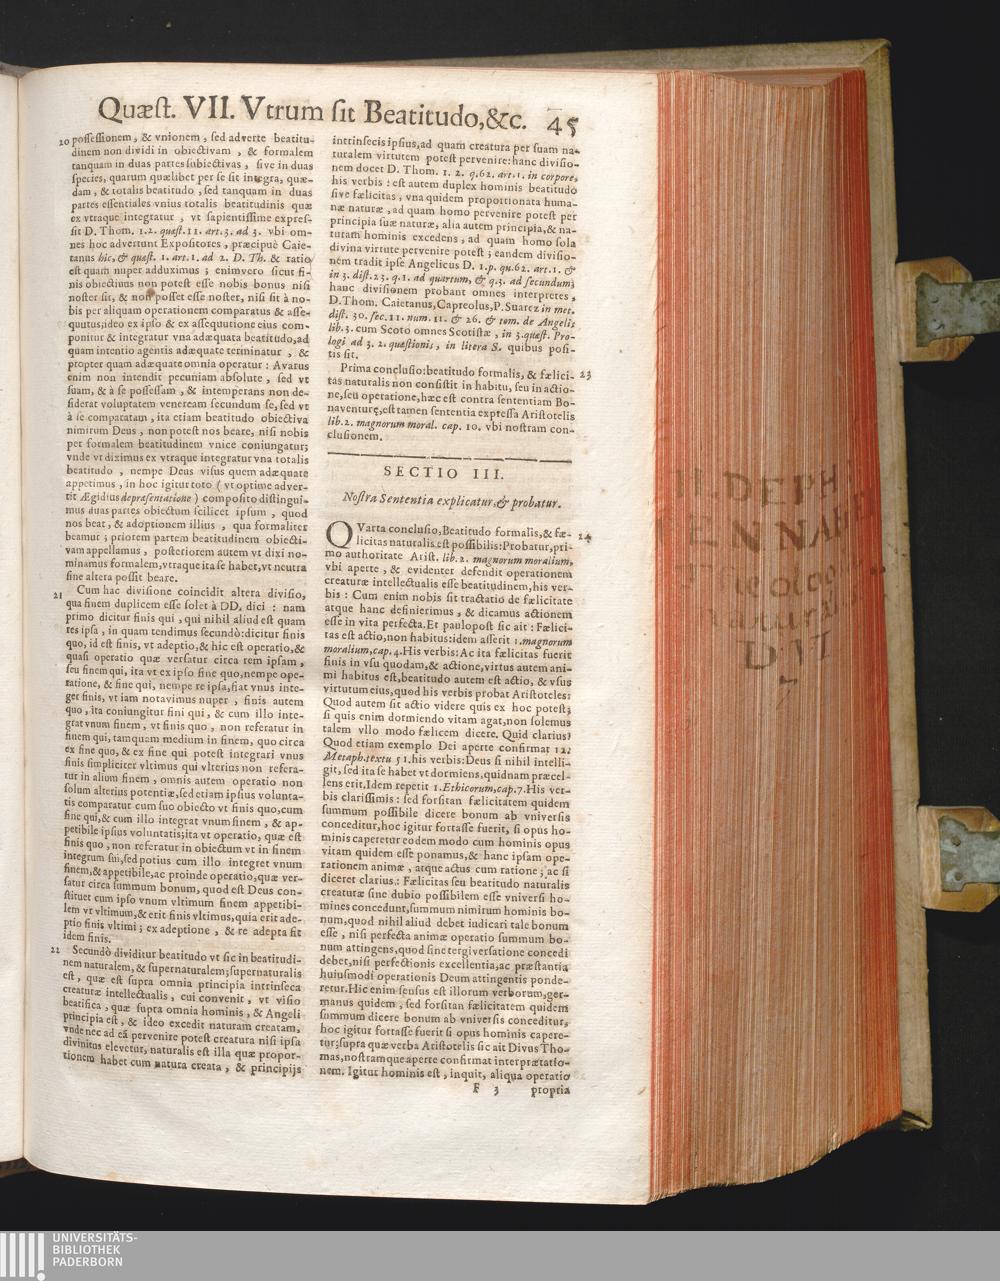 Quæst. VII. Vtrum sit Beatitudo,&c. 45
20 possessionem, & vnionem, sed adverte beatitu-
dinem non dividi in obiectivam, & formalem
tanquam in duas partes subiectivas, sive in duas
species, quarum quælibet per se sit integra, quæ-
dam, & totalis beatitudo, sed tanquam in duas
partes essentiales vnius totalis beatitudinis quæ
ex vtraque integratur, vt sapientissime expres-
sit D. Thom. 1.2. quæst.11. art.3. ad 3. vbi om-
nes hoc advertunt Expositores, præcipuè Caie-
tanus hic, & quæst. 1. art.1. ad 2. D. Th. & ratio
est quam nuper adduximus; enimvero sicut fi-
nis obiectiuus non potest esse nobis bonus nisi
noster sit, & non posset esse noster, nisi sit à no-
bis per aliquam operationem comparatus & asse-
quutus;ideo ex ipso & ex assequutione eius com-
ponitur & integratur vna adæquata beatitudo,ad
quam intentio agentis adæquate terminatur, &
propter quam adæquate omnia operatur: Avarus
enim non intendit pecuniam absolute, sed vt
suam, & à se possessam, & intemperans non de-
siderat voluptatem veneream secundum se,sed vt
à se comparatam, ita etiam beatitudo obiectiva
nimirum Deus, non potest nos beare, nisi nobis
per formalem beatitudinem vnice coniungatur;
vnde vt diximus ex vtraque integratur vna totalis
beatitudo, nempe Deus visus quem adæquate
appetimus, in hoc igitur toto (vt optime adver-
tit Ægidius de præsentatione) composito distingui-
mus duas partes obiectum scilicet ipsum, quod
nos beat, & adoptionem illius, qua formaliter
beamur; priorem partem beatitudinem obiecti-
vam appellamus, posteriorem autem vt dixi no-
minamus formalem,vtraque ita se habet,vt neutra
sine altera possit beare.
21 Cum hac divisione coincidit altera divisio,
qua finem duplicem esse solet à DD. dici: nam
primo dicitur finis qui, qui nihil aliud est quam
res ipsa, in quam tendimus secundò:dicitur finis
quo, id est finis, vt adeptio,& hic est operatio,&
quasi operatio quæ versatur circa rem ipsam,
seu finem qui, ita vt ex ipso fine quo,nempe ope-
ratione, & fine qui, nempe re ipsa,fiat vnus inte-
ger finis, vt iam notavimus nuper, finis autem
quo, ita coniungitur fini qui, & cum illo inte-
grat vnum finem, vt finis quo, non referatur in
finem qui, tamquam medium in finem, quo circa
ex fine quo, & ex fine qui potest integrari vnus
finis simpliciter vltimus qui vlterius non refera-
tur in alium finem, omnis autem operatio non
solum alterius potentiæ,sed etiam ipsius volunta-
tis comparatur cum suo obiecto vt finis quo,cum
fine qui,& cum illo integrat vnum finem, & ap-
petibile ipsius voluntatis;ita vt operatio, quæ est
finis quo, non referatur in obiectum vt in finem
integrum sui,sed potius cum illo integret vnum
finem,& appetibile,ac proinde operatio,quæ ver-
satur circa summum bonum, quod est Deus con-
stituet cum ipso vnum vltimum finem appetibi-
lem vt vltimum,& erit finis vltimus,quia erit ade-
ptio finis vltimi; ex adeptione, & re adepta fit
idem finis.
22 Secundò dividitur beatitudo vt sic in beatitudi-
nem naturalem, & supernaturalem;supernaturalis
est, quæ est supra omnia principia intrinseca
creaturæ intellectualis, cui convenit, vt visio
beatifica, quæ supra omnia hominis, & Angeli
principia est, & ideo excedit naturam creatam,
vnde nec ad eã pervenire potest creatura nisi ipsa
divinitus elevetur, naturalis est illa quæ propor-
tionem habet cum natura creata, & principijs
intrinsecis ipsius,ad quam creatura per suam na-
turalem virtutem potest pervenire:hanc divisio-
nem docet D. Thom. 1. 2. q.62. art.1. in corpore,
his verbis: est autem duplex hominis beatitudo
sive fælicitas, vna quidem proportionata huma-
næ naturæ, ad quam homo pervenire potest per
principia suæ naturæ, alia autem principia,& na-
turam hominis excedens, ad quam homo sola
divina virtute pervenire potest; eandem divisio-
nem tradit ipse Angelicus D. 1.p. qu.62. art.1. &
in 3. dist.23. q.1. ad quartum, & q.3. ad secundum;
hanc divisionem probant omnes interpretes,
D.Thom. Caietanus,Capreolus,P.Suarez in met.
disp. 30. sec.11. num. 11. & 26. & tom. de Angelis
lib.3. cum Scoto omnes Scotistæ, in 3.quæst. Pro-
logi ad 3. 2. quæstionis, in litera S. quibus posi-
tis sit.
Prima conclusio:beatitudo formalis, & fælici- 23
tas naturalis non consistit in habitu, seu in actio-
ne,seu operatione,hæc est contra sententiam Bo-
naventuræ,est tamen sententia expressa Aristotelis
lib.2. magnorum moral. cap. 10. vbi nostram con-
clusionem.
SECTIO III.
Nostra Sententia explicatur,& probatur.
QVarta conclusio,Beatitudo formalis,& fæ- 24
licitas naturalis est possibilis:Probatur,pri-
mo authoritate Arist. lib.2. magnorum moralium,
vbi aperte, & evidenter defendit operationem
creaturæ intellectualis esse beatitudinem,his ver-
bis: Cum enim nobis sit tractatio de fælicitate
atque hanc definierimus, & dicamus actionem
esse in vita perfecta.Et paulopost sic ait: Fælici-
tas est actio,non habitus:idem asserit 1.magnorum
moralium,cap.4.His verbis:Ac ita fælicitas fuerit
finis in vsu quodam,& actione,virtus autem ani-
mi habitus est,beatitudo autem est actio, & vsus
virtutum eius,quod his verbis probat Aristoteles:
Quod autem sit actio videre quis ex hoc potest;
si quis enim dormiendo vitam agat,non solemus
talem vllo modo fælicem dicere. Quid clarius?
Quod etiam exemplo Dei aperte confirmat 12.
Metaph.textu 51.his verbis:Deus si nihil intelli-
git, sed ita se habet vt dormiens,quidnam præcel-
lens erit.Idem repetit 1.Ethicorum,cap.7.His ver-
bis clarissimis: sed forsitan fælicitatem quidem
summum possibile dicere bonum ab vniversis
conceditur,hoc igitur fortasse fuerit, si opus ho-
minis caperetur eodem modo cum hominis opus
vitam quidem esse ponamus,& hanc ipsam ope-
rationem animæ, atque actus cum ratione; ac si
diceret clarius: Fælicitas seu beatitudo naturalis
creaturæ sine dubio possibilem esse vniversi ho-
mines concedunt,summum nimirum hominis bo-
num,quod nihil aliud debet iudicari tale bonum
esse, nisi perfecta animæ operatio summum bo-
num attingens,quod sine tergiversatione concedi
debet,nisi perfectionis excellentia,ac præstantia
huiusmodi operationis Deum attingentis ponde-
retur.Hic enim sensus est illorum verborum,ger-
manus quidem, sed forsitan fælicitatem quidem
summum dicere bonum ab vniversis conceditur,
hoc igitur fortasse fuerit si opus hominis capere-
tur;supra quæ verba Aristotelis sic ait Divus Tho-
mas,nostramque aperte confirmat interprætatio-
nem. Igitur hominis est, inquit, aliqua operatio
F 3 propria
UNIVERSITÄTS-
BIBLIOTHEK
PADERBORN